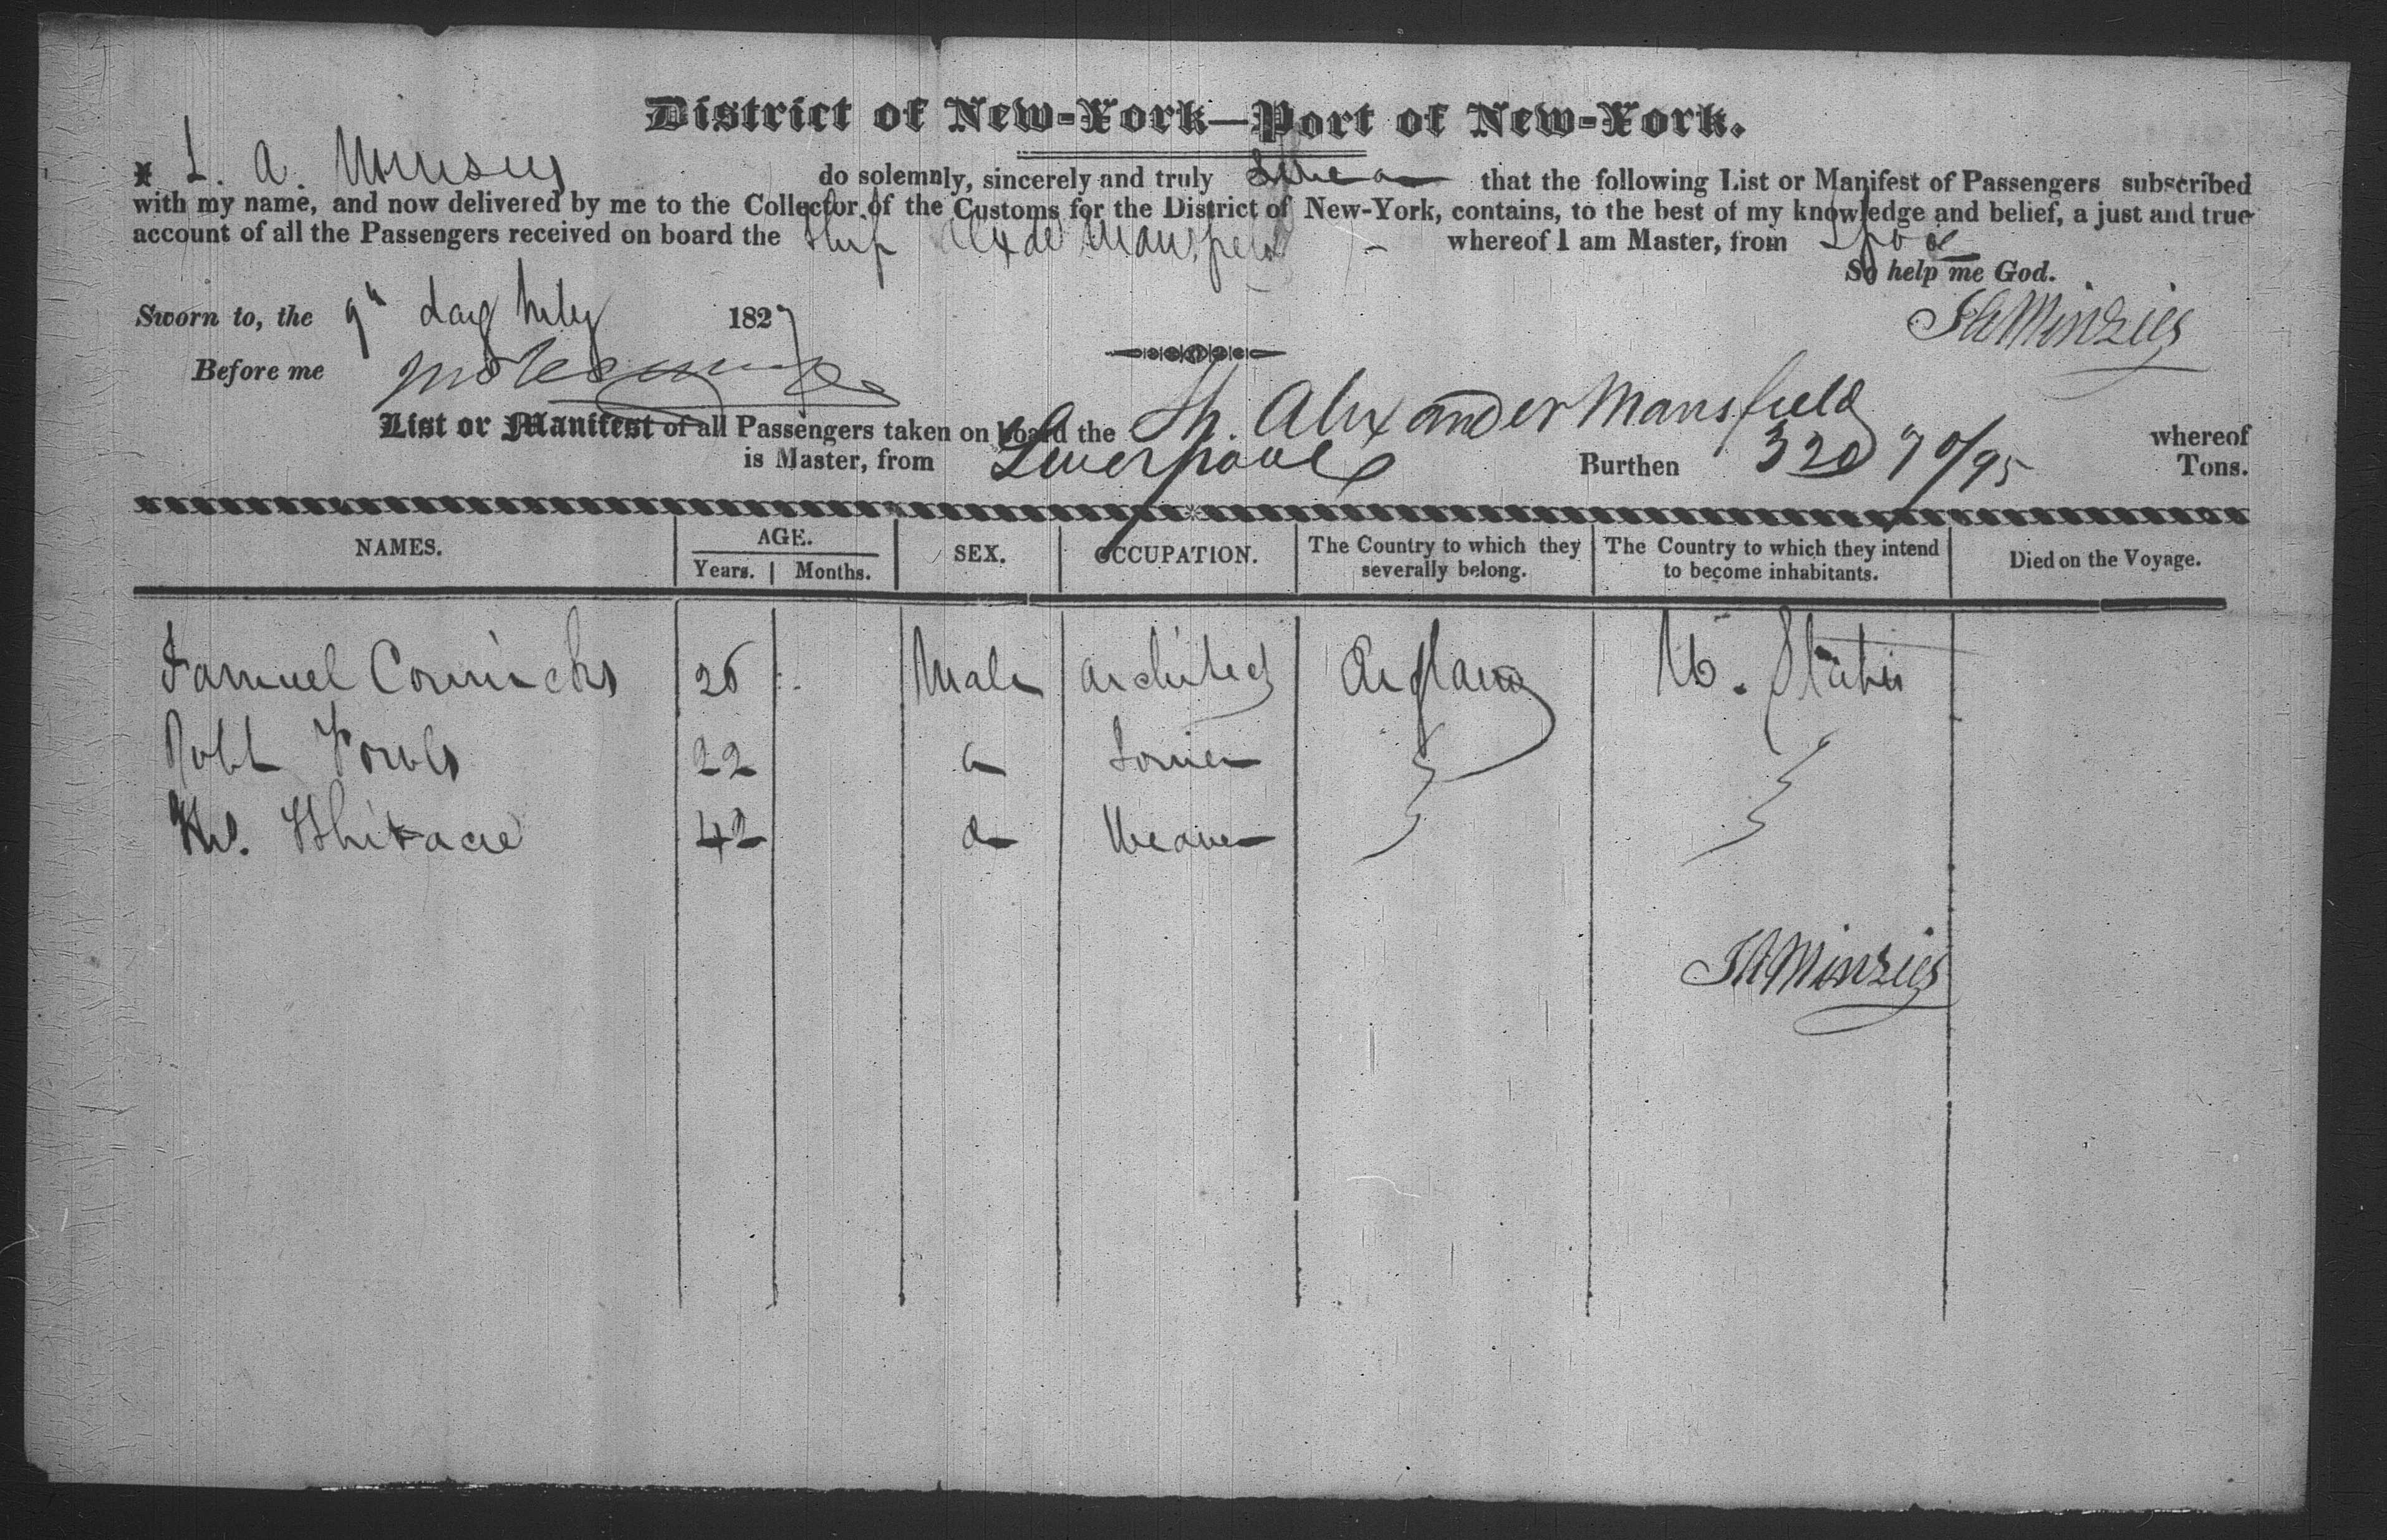 District of New-York—Port of New-York.
I. A. Minzies do solemnly, sincerely and truly Swear that the following List or Manifest of Passengers subscribed
with my name, and now delivered by me to the Collector of the Customs for the District of New-York, contains, to the best of my knowledge and belief, a just and true
account of all the Passengers received on board the Ship Alexdr Mansfield whereof I am Master, from Lpool
So help me God.
Sworn to, the 9th day July 1827
Minzies
Before me
List or Manifest of all Passengers taken on board the Sh. Alexander Mansfield whereof
is Master, from Liverpool Burthen 320 70/95 Tons.
NAMES. AGE. SEX. OCCUPATION. The Country to which they severally belong. The Country to which they intend to become inhabitants. Died on the Voyage.
Years. Months.
Samuel 26 Male architect England U. States
Robt Fowls 22 Joiner
Whitacre 42 Weaver
Minzies